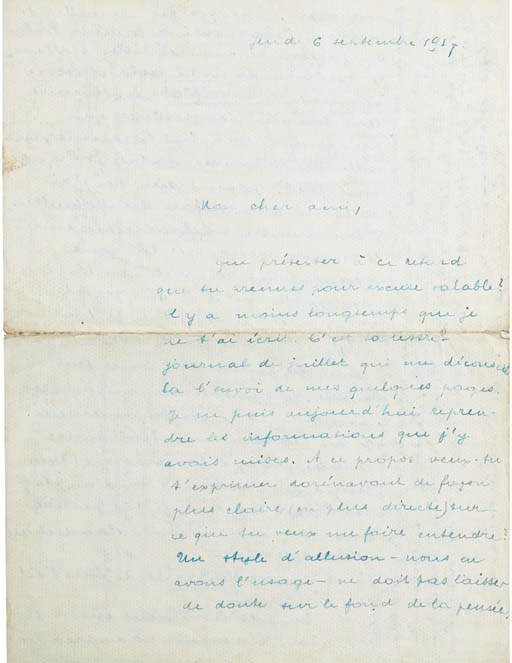 jeudi 6 septembre 1917.
Mon cher ami,
que présenter à ce retard
que tu prennes pour excuse valable?
Il y a moins longtemps que je
ne t'ai écrit. C'est ta lettre-
journal de juillet qui me déconseil
la l'envoi de mes quelques pages.
Je ne puis aujourd'hui repren-
dre les informations que j'y
avais mises. A ce propos veux-tu
t'exprimer dorénavant de façon
plus claire, ou plus directe, sur
ce que tu veux me faire entendre?
Un style d'allusion - nous en
avons l'usage - ne doit pas laisser
de doute sur le fond de la pensée,